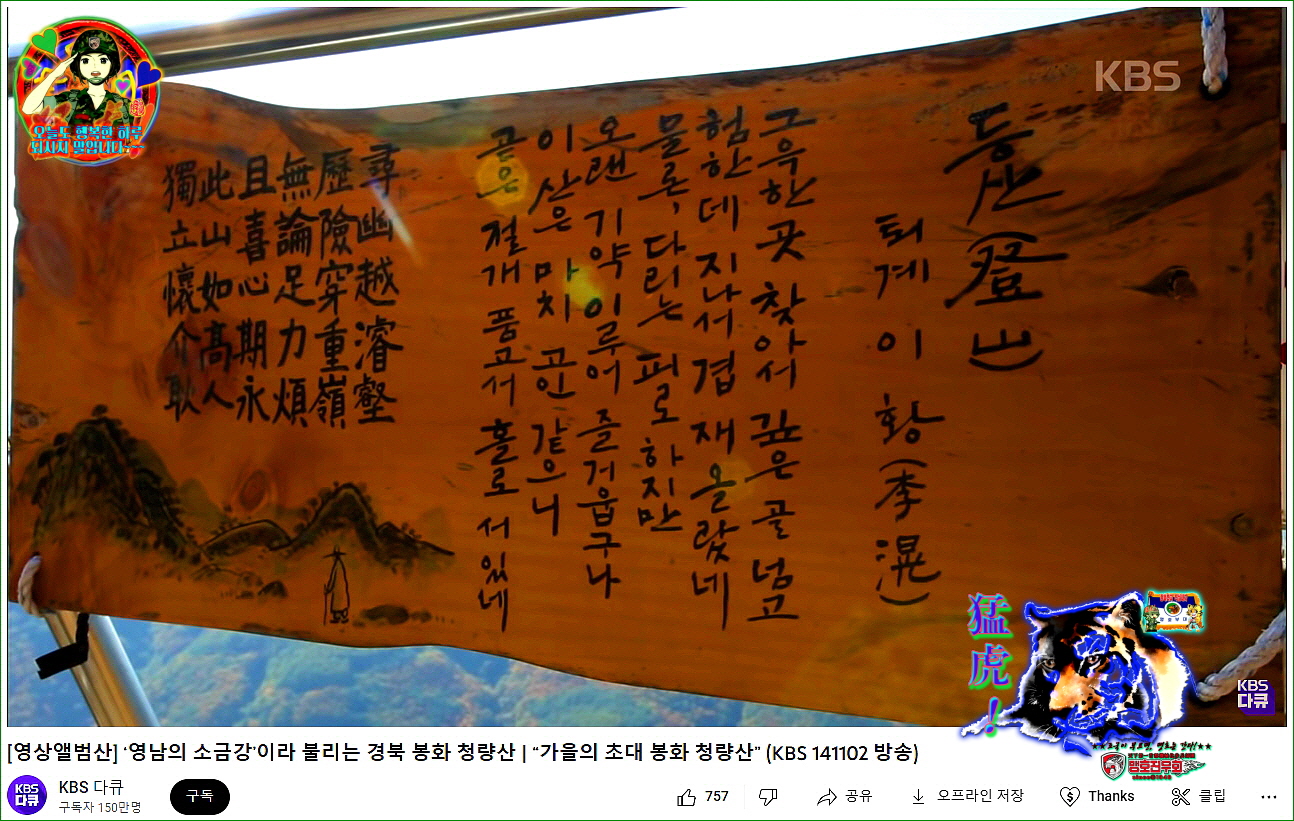 KBS
오늘도 행복한 하루
되시지 말입니다.~~
등산(登山)
퇴계 이황(李滉)
그윽한 곳 찾아서 깊은 골 넘고
험한데 지나서 겹 재 올랐네
물론, 다리는 피로하지만
오랜 기약 이루어 즐거웁구나
이 산은 마치 고인 같으니
곧은 절개 품고서 홀로 서 있네
尋幽越濬壑
歷險穿重嶺
無論足力煩
且喜心期永
此山如高人
獨立懷介耿
猛虎!
KBS
다큐
맹호전우회
[영상앨범산] ‘영남의 소금강’이라 불리는 경북 봉화 청량산 | “가을의 초대 봉화 청량산” (KBS 141102 방송)
KBS
다큐
KBS 다큐
구독자 150만명
구독
757
공유
오프라인 저장
Thanks
클립